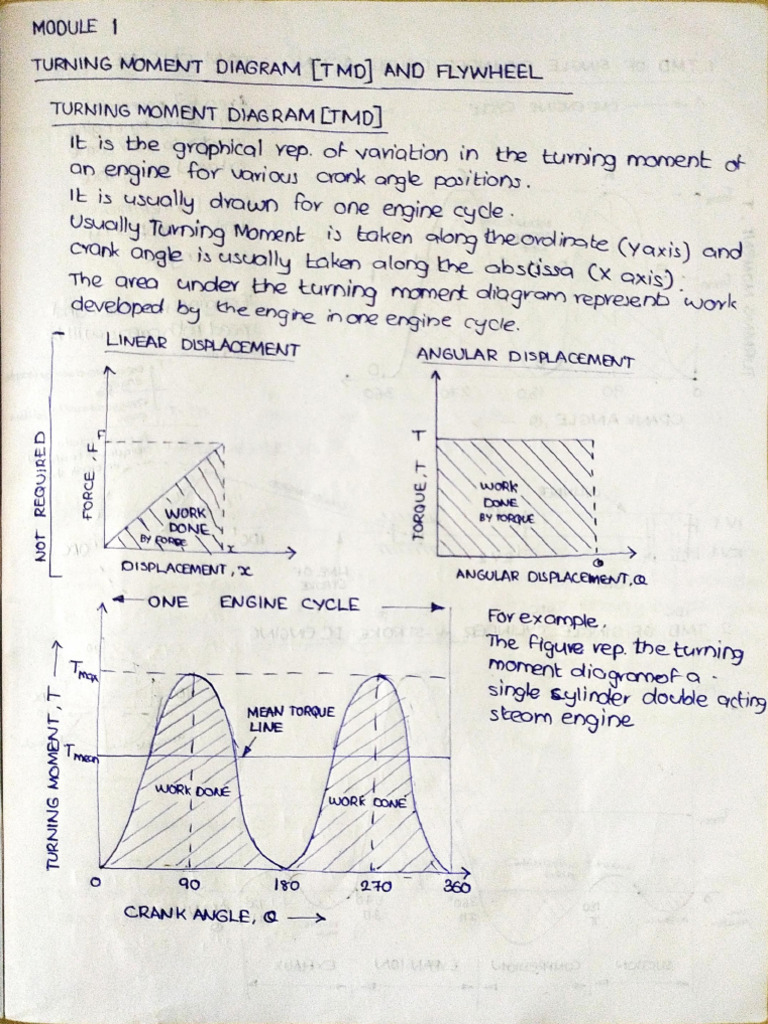 MODULE 1
TURNING MOMENT DIAGRAM [TMD] AND FLYWHEEL
TURNING MOMENT DIAGRAM [TMD]
It is the graphical rep. of variation in the turning moment of
an engine for various crank angle positions.
It is usually drawn for one engine cycle.
Usually Turning Moment is taken along the ordinate (Y axis) and
crank angle is usually taken along the abscissa (X axis).
The area under the turning moment diagram represents work
developed by the engine in one engine cycle.
NOT REQUIRED
LINEAR DISPLACEMENT
FORCE, F
F
WORK
DONE
BY FORCE
x
DISPLACEMENT, x
ANGULAR DISPLACEMENT
TORQUE, T
T
WORK
DONE
BY TORQUE
θ
ANGULAR DISPLACEMENT, θ
ONE ENGINE CYCLE
For example,
The figure rep. the turning
moment diagram of a
single cylinder double acting
steam engine
TURNING MOMENT, T
Tmax
MEAN TORQUE
LINE
Tmean
WORK DONE
WORK DONE
0 90 180 270 360
CRANK ANGLE, θ